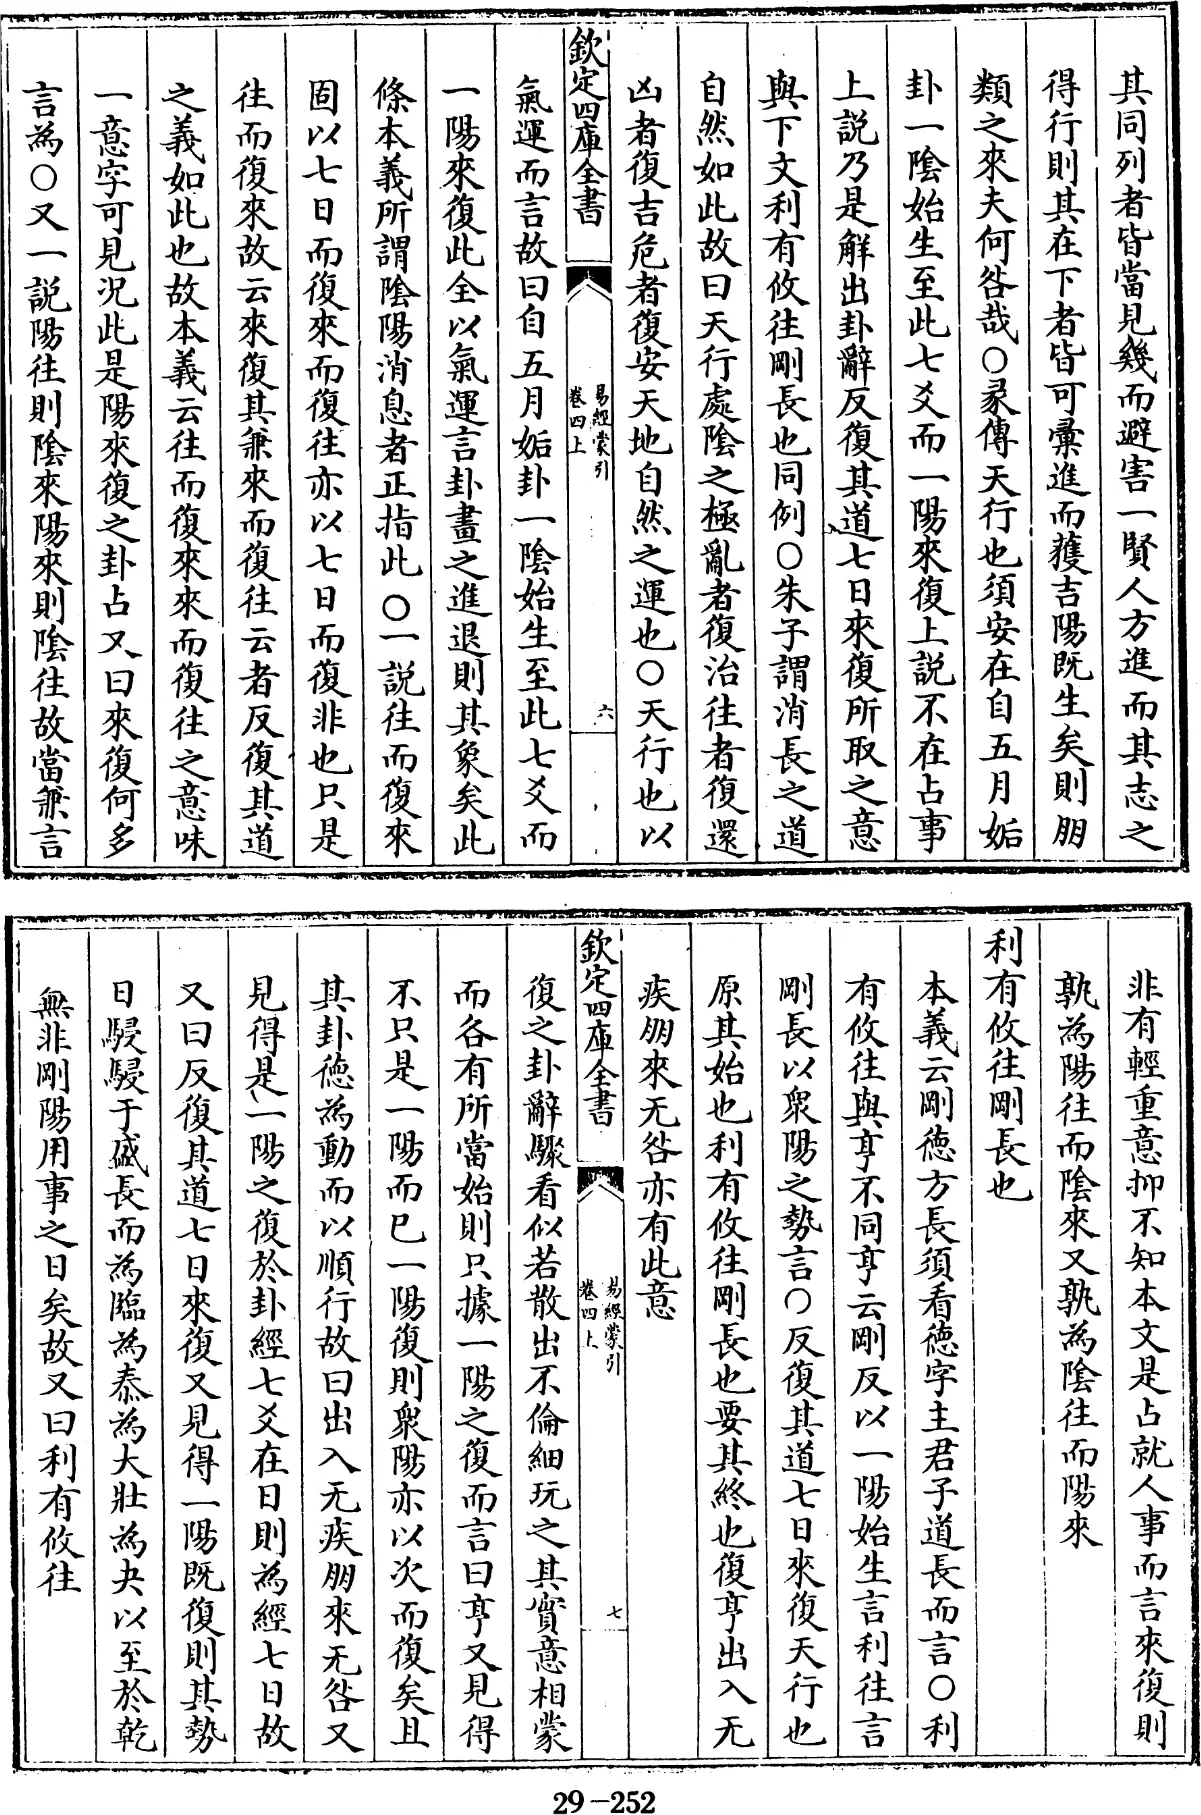 其同列者皆當見幾而避害一賢人方進而其志之
得行則其在下者皆可彚進而獲吉陽既生矣則朋
類之來夫何咎哉○彖傳天行也須安在自五月姤
卦一隂始生至此七爻而一陽來復上説不在占事
上説乃是解出卦辭反復其道七日來復所取之意
與下文利有攸往剛長也同例○朱子謂消長之道
自然如此故曰天行處隂之極亂者復治往者復還
凶者復吉危者復安天地自然之運也○天行也以
欽定四庫全書
易經蒙引
卷四上
六
氣運而言故曰自五月姤卦一隂始生至此七爻而
一陽來復此全以氣運言卦畫之進退則其象矣此
條本義所謂隂陽消息者正指此○一説往而復來
固以七日而復來而復往亦以七日而復非也只是
往而復來故云來復其兼來而復往云者反復其道
之義如此也故本義云往而復來來而復往之意味
一意字可見况此是陽來復之卦占又曰來復何多
言為○又一説陽往則隂來陽來則隂往故當兼言
非有輕重意抑不知本文是占就人事而言來復則
孰為陽往而隂來又孰為隂往而陽來
利有攸往剛長也
本義云剛徳方長須看徳字主君子道長而言○利
有攸往與亨不同亨云剛反以一陽始生言利往言
剛長以衆陽之勢言○反復其道七日來復天行也
原其始也利有攸往剛長也要其終也復亨出入无
疾朋來无咎亦有此意
欽定四庫全書
易經蒙引
卷四上
七
復之卦辭驟看似若散出不倫細玩之其實意相蒙
而各有所當始則只據一陽之復而言曰亨又見得
不只是一陽而已一陽復則衆陽亦以次而復矣且
其卦徳為動而以順行故曰出入无疾朋來无咎又
見得是一陽之復於卦經七爻在日則為經七日故
又曰反復其道七日來復又見得一陽既復則其勢
日駸駸于盛長而為臨為泰為大壯為夬以至於乾
無非剛陽用事之日矣故又曰利有攸往
29-252